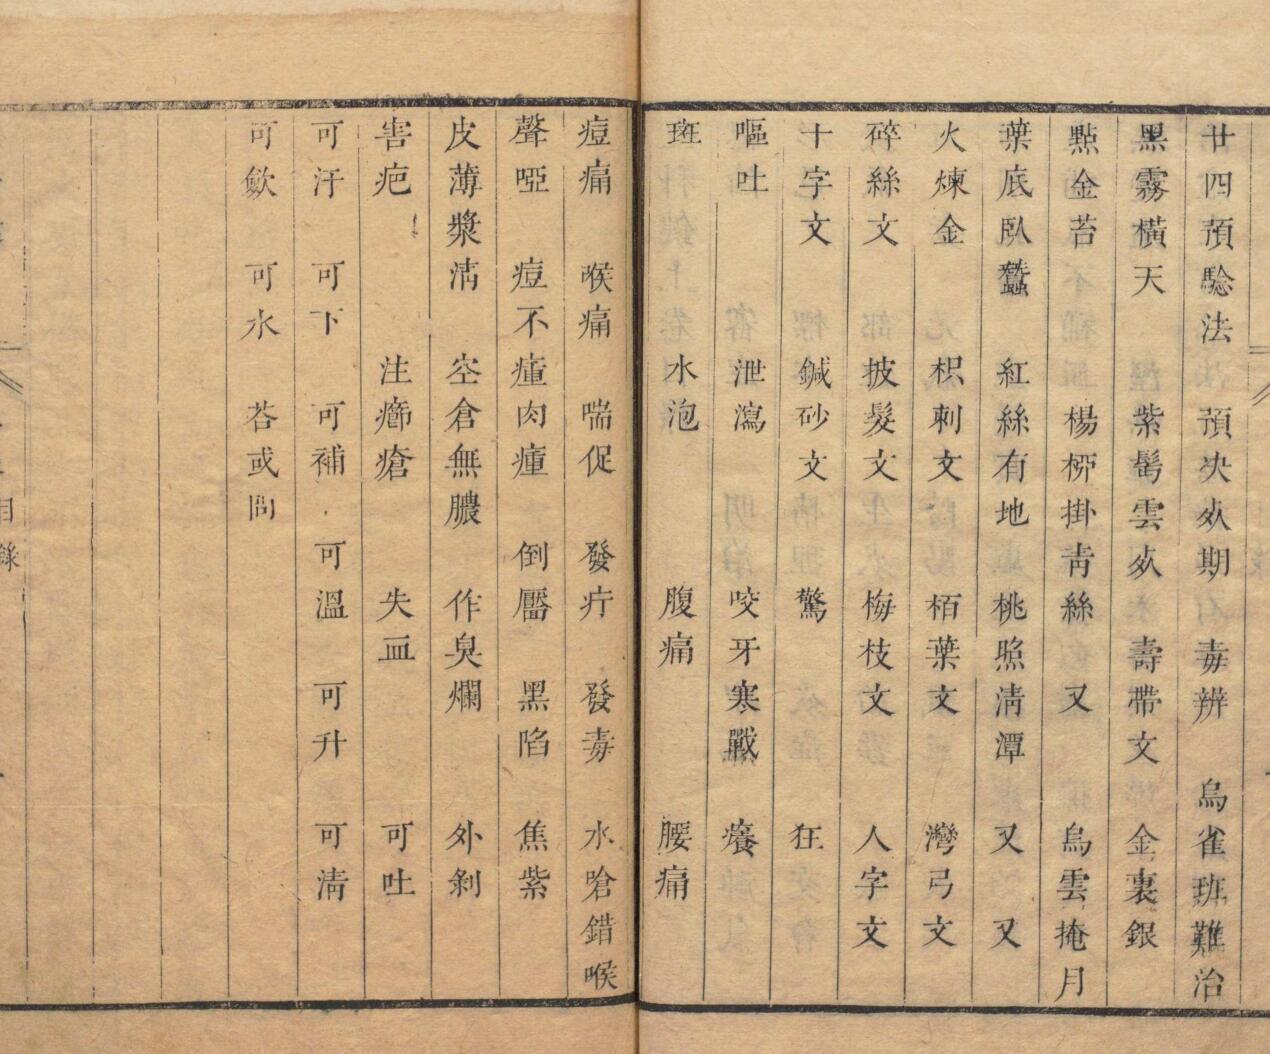 廿四預驗法　預决死期　毒辨　烏雀斑難治
黑霧橫天　紫髩雲死　壽帶文　金裏銀
點金苔　楊栁掛青絲　又　烏雲掩月
葉底臥蠶　紅絲有地　桃照清潭　又　又
火煉金　枳刺文　栢葉文　灣弓文
碎絲文　披髮文　梅枝文　人字文
十字文　鍼砂文　驚　狂
嘔吐　泄瀉　咬牙寒戰　癢
斑　水泡　腹痛　腰痛
痘痛　喉痛　喘促　發疔　發毒　水嗆錯喉
聲啞　痘不瘇肉瘇　倒靨　黑陷　焦紫
皮薄漿清　空倉無膿　作臭爛　外剝
害疤　注癤瘡　失血　可吐
可汗　可下　可補　可溫　可升　可清
可飲　可水　荅或問
目錄